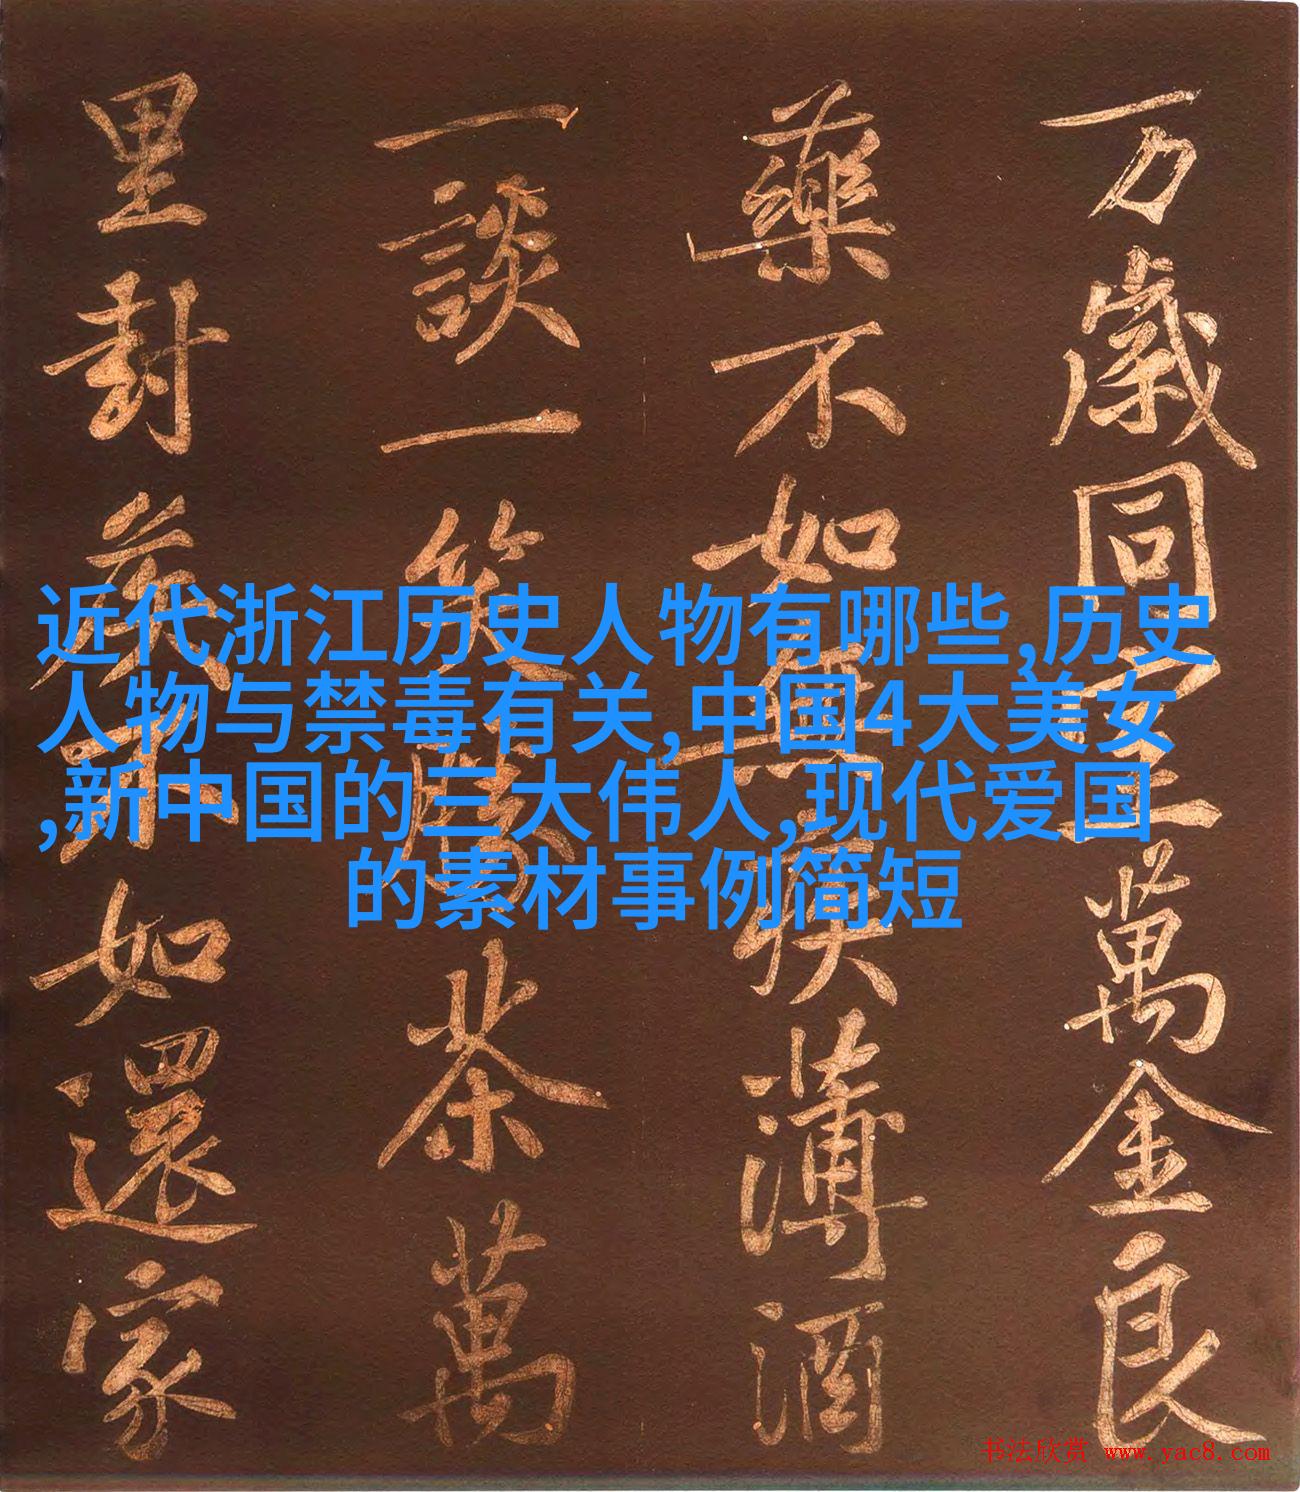 万歲同室萬金良
藥不如無疾薄酒
一談一笑勝茶萬
里封侯不如還家
近代浙江历史人物有哪些,历史
人物与禁毒有关,中国4大美女
,新中国的三大伟人,现代爱国
的素材事例简短
书法欣赏 www.yac8.com